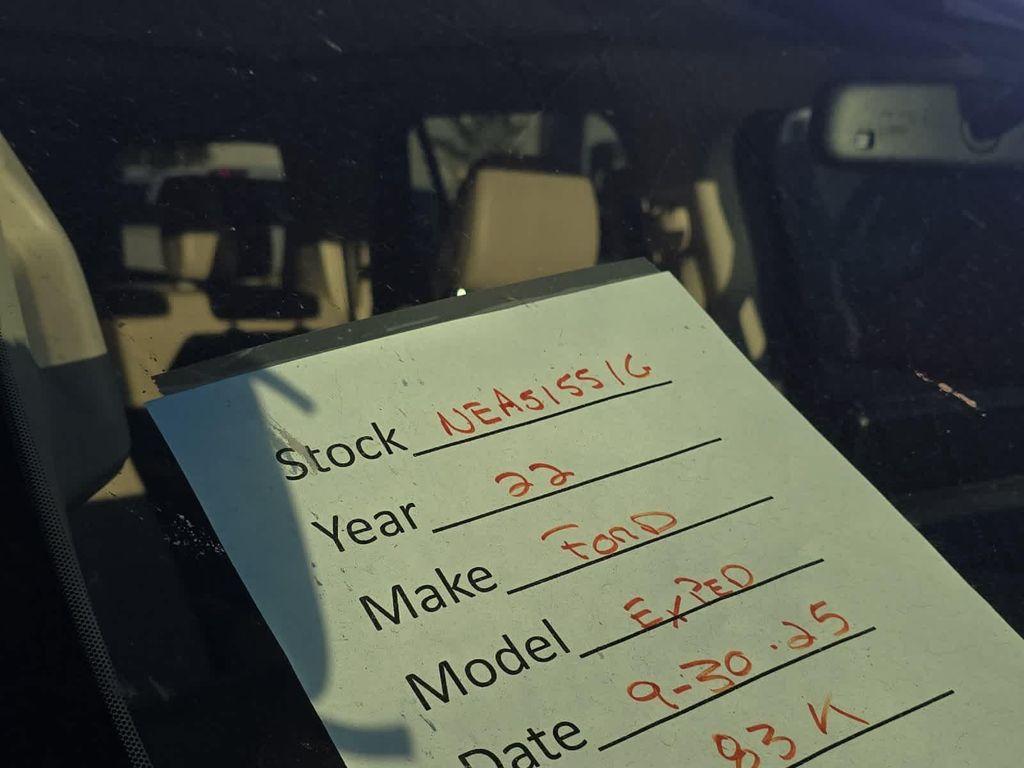 Stock NEA51551G
Year 22
Make Ford
Model EXPED
Date 9-30.25
83 K